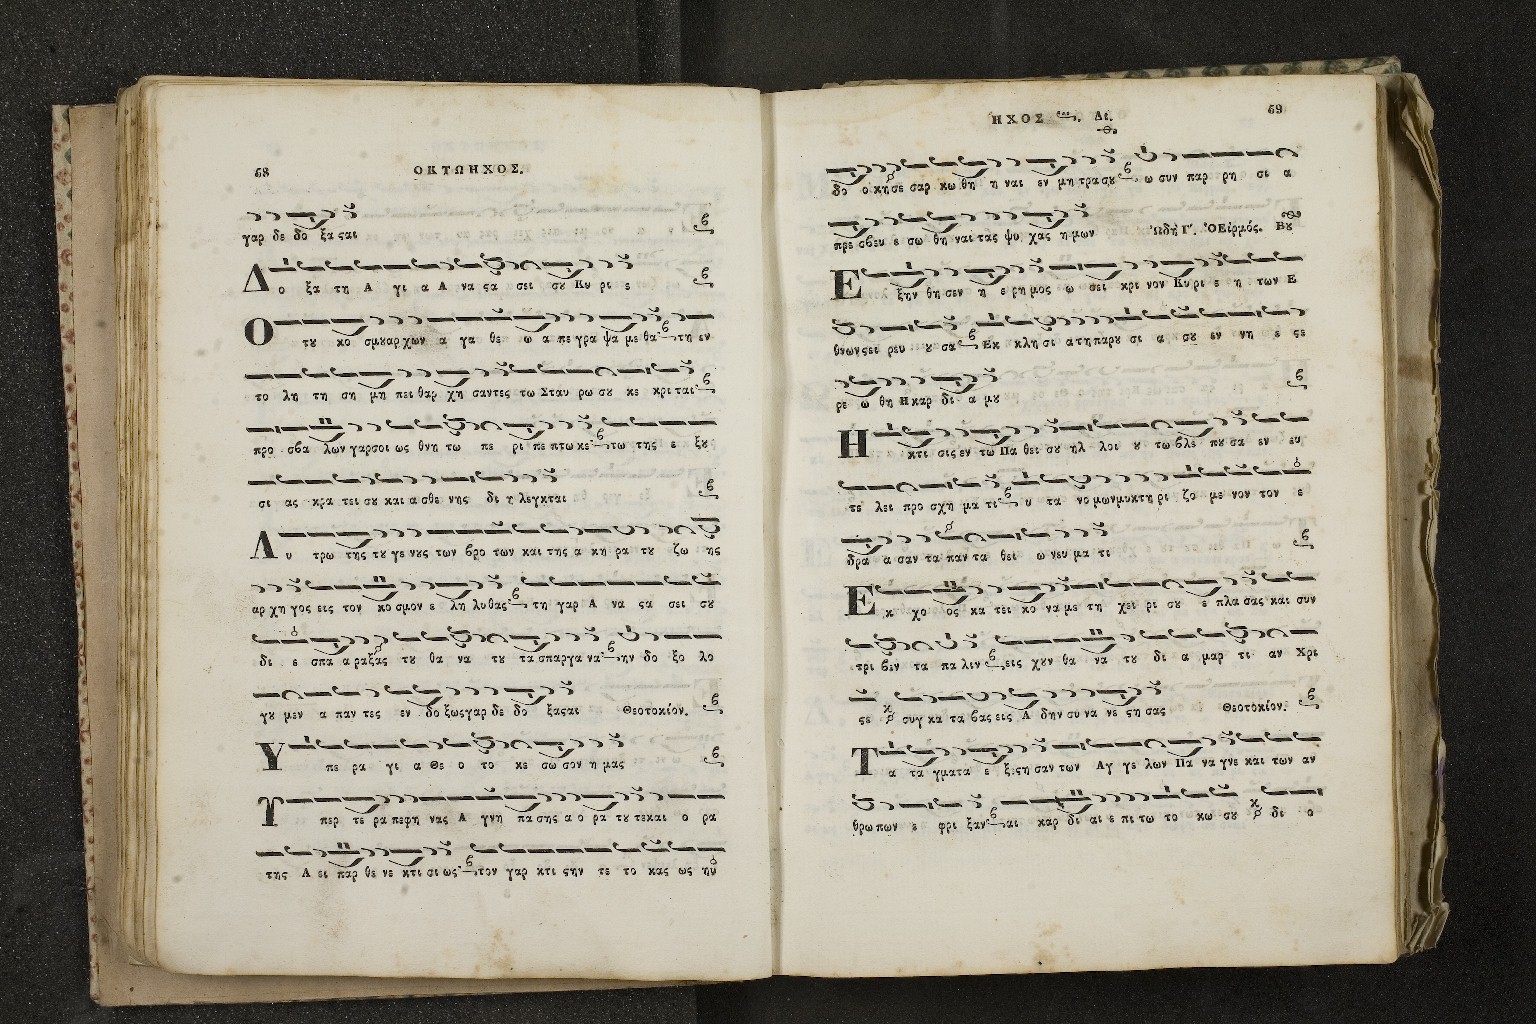 68
ΟΚΤΩΗΧΟΣ.
γαρ δε δο ξα ςαι
Δ ο ξα τη Α γι α Α να ςα σει σου Κυ ρι ε
Ο του κο σμου αρ χων α γα θε ω α πε γρα ψα με θα τη εν
το λη τη ση μη πει θαρ χη σαντες τω Σταυ ρω σου κε κρι ται
προ σβα λων γαρ σοι ως θνη τω πε ρι πε πτω κε τω της ε ξου
σι ας κρα τει σου και α σθε νης δι η λεγκται
Λ υ τρω της του γε νους των βρο των και της α κη ρα του ζω ης
αρ χη γος εις τον κο σμον ε λη λυ θας τη γαρ Α να ςα σει σου
δι ε σπα α ρα ξας του θα να του τα σπαργα να ην δο ξο λο
γου μεν α παν τες εν δο ξως γαρ δε δο ξαςαι Θεοτοκίον.
Υ πε ρα γι α Θε ο το κε σω σον η μας
Υ περ τε ρα πεφη νας Α γνη πα σης α ο ρα του τε και ο ρα
της Α ει παρ θε νε κτι σι ως τον γαρ κτι ςην τε το κας ως ηυ
ΗΧΟΣ Δι.
69
δο ο κη σε σαρ κω θη η ναι εν μη τρα σου ω συν παρ ρη σι α
πρε σβευ ε σω θη ναι τας ψυ χας η μων Ὠδὴ Γ'. Ὁ Εἱρμός. Βου
Ε ξην θη σεν η ε ρη μος ω σει κρι νον Κυ ρι ε η των Ε
θνων ςει ρευ ου σα Εκ κλη σι α τη παρου σι α σου εν νη ε ςε
ρε ω θη Η καρ δι α μου
Η κτι σις εν τω Πα θει σου ηλ λοι ου το βλε που σα εν ευ
τε λει προ σχη μα τι υ τα νο μων μυκτη ρι ζο με νον τον ε
δρα α σαν τα παν τα θει ω νευ μα τι
Ε κ χο ος κα τει κο να με τη χει ρι σου ε πλα σας και συν
τρι βεν τα πα λιν εις χουν θα να του δι α μαρ τι αν Χρι
ςε συγ κα τα βας εις Α δην συ να νε ςη σας Θεοτοκίον.
Τ α τα γματα ε ξεςη σαν των Αγ γε λων Πα να γνε και των αν
θρω πων ε φρι ξαν αι καρ δι αι ε πι τω το κω σου δι ο